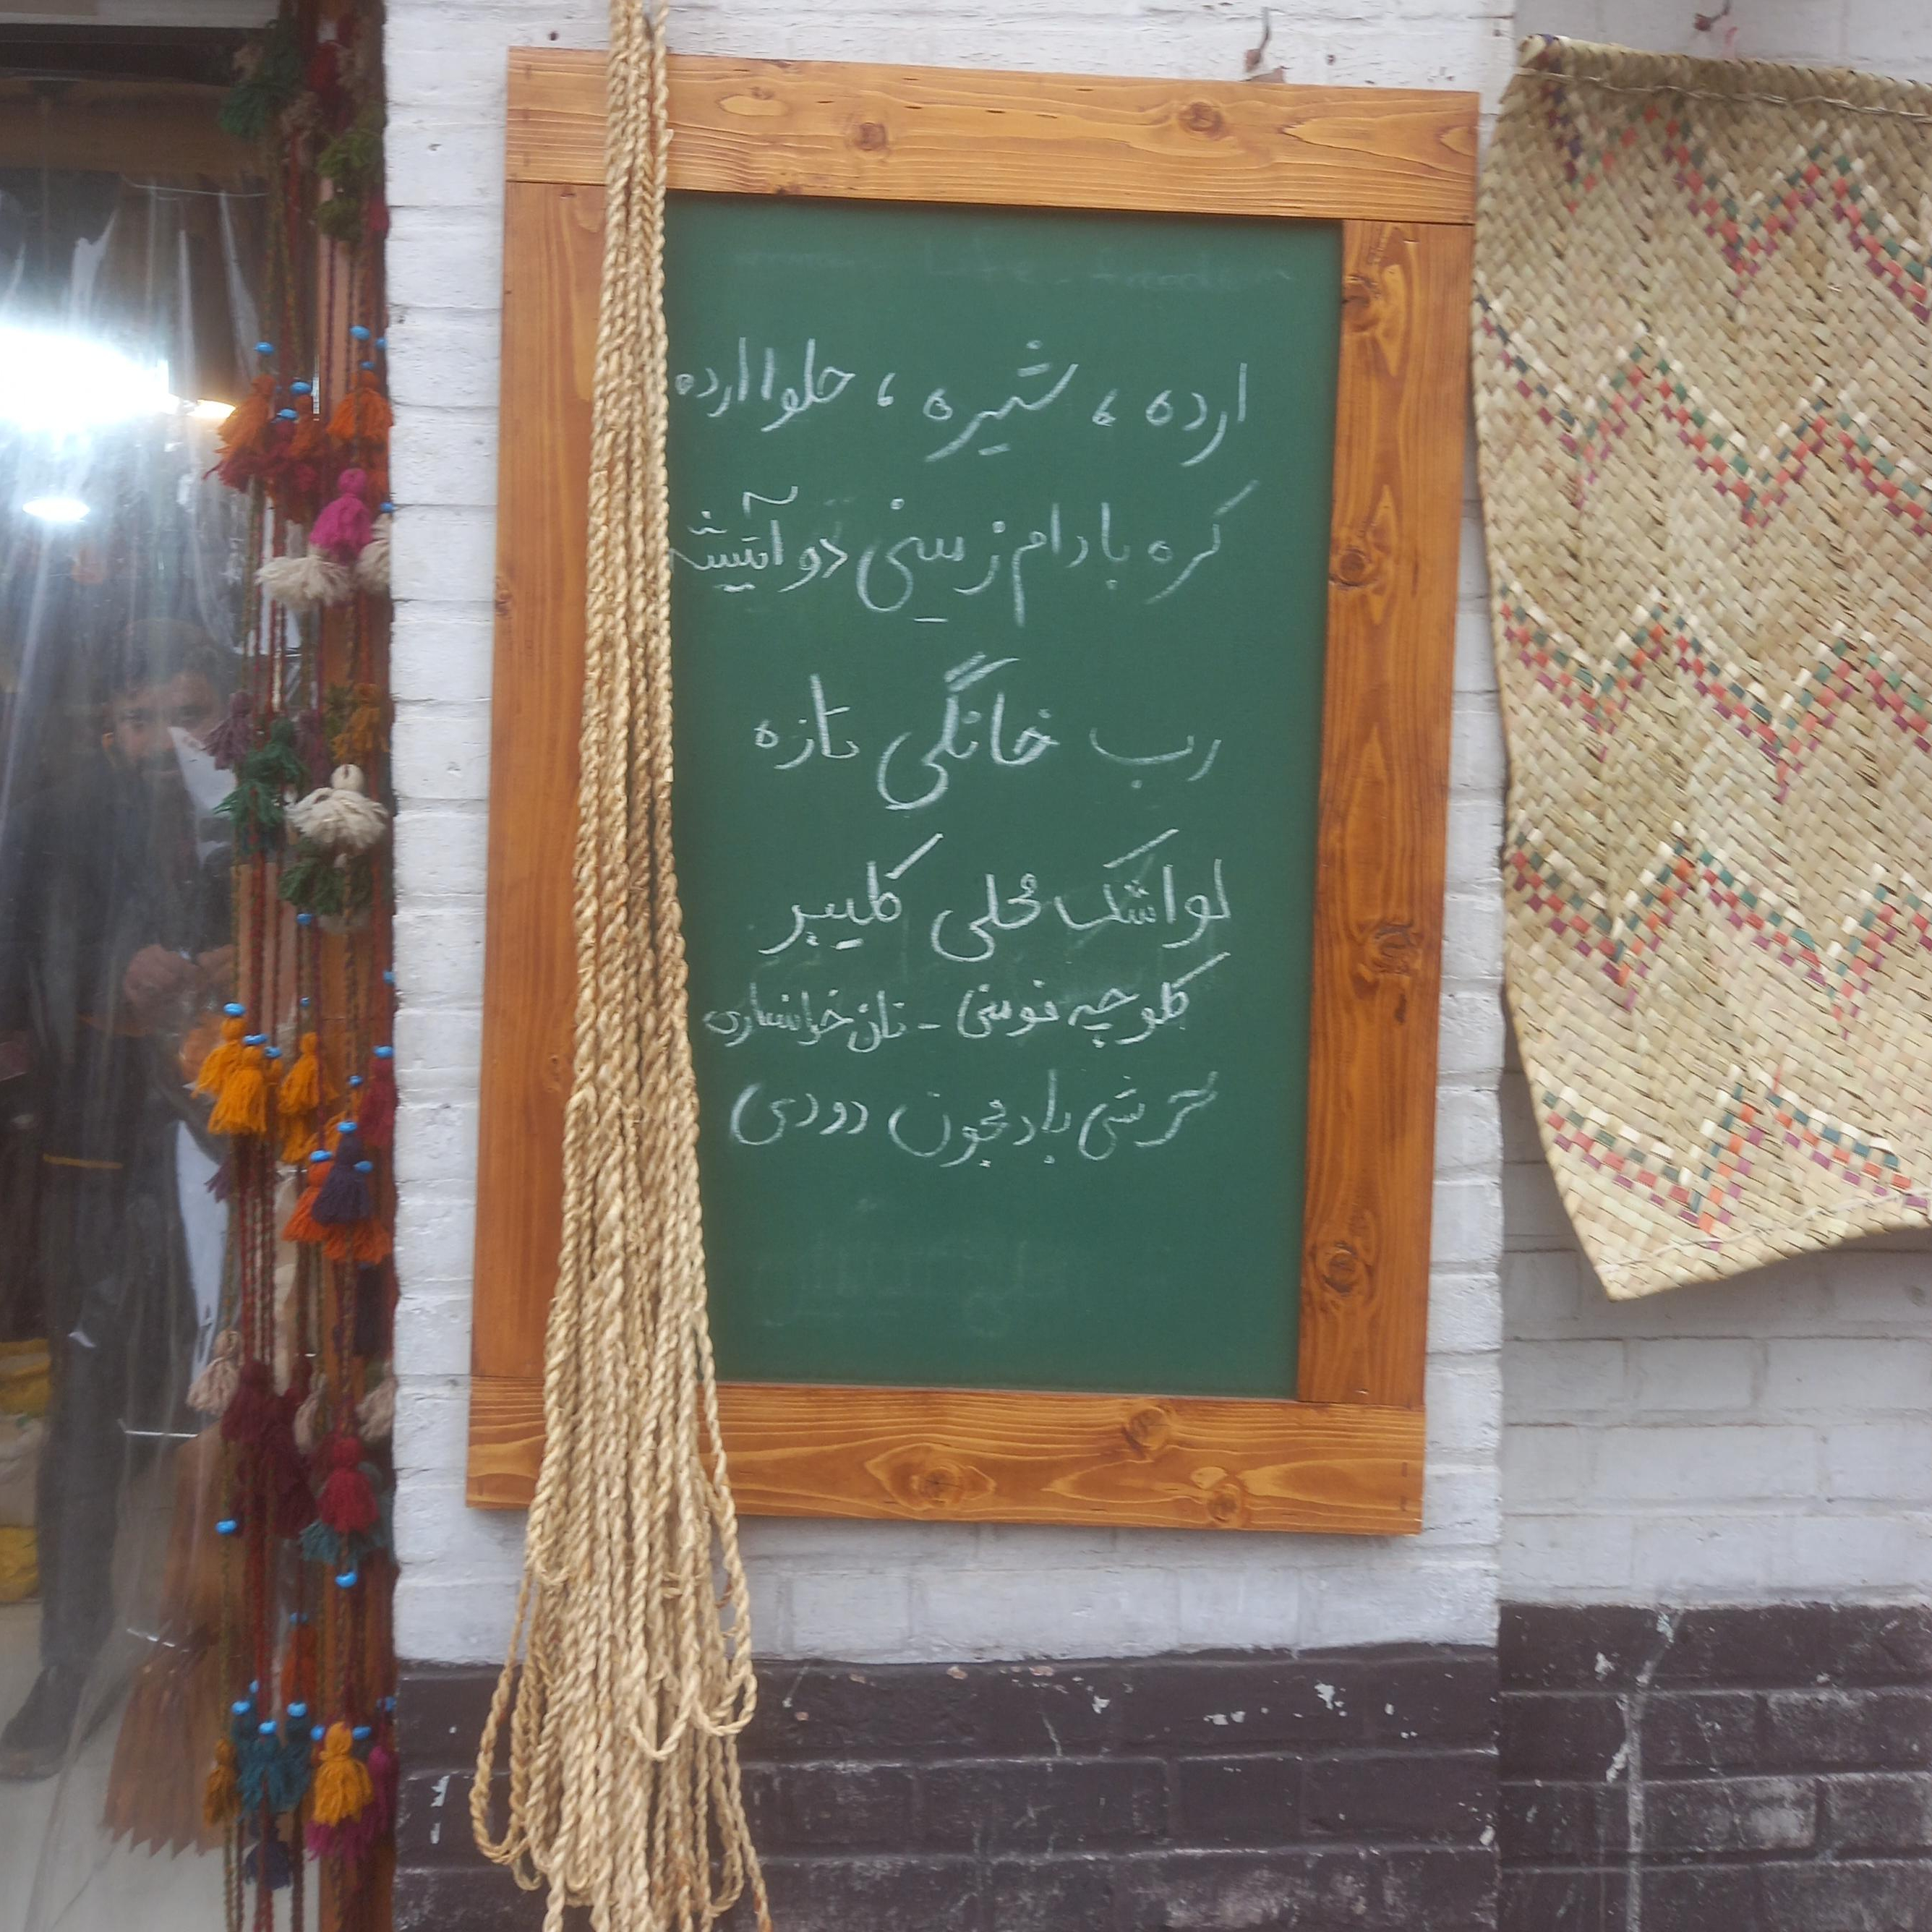 ارده ، شیره ، حلوا ارده
کره بادام زمینی دو آتیشه
رب خانگی تازه
لواشک محلی کلیبر
کلوچه فومنی - نان خوانساری
ترشی بادمجون دودی